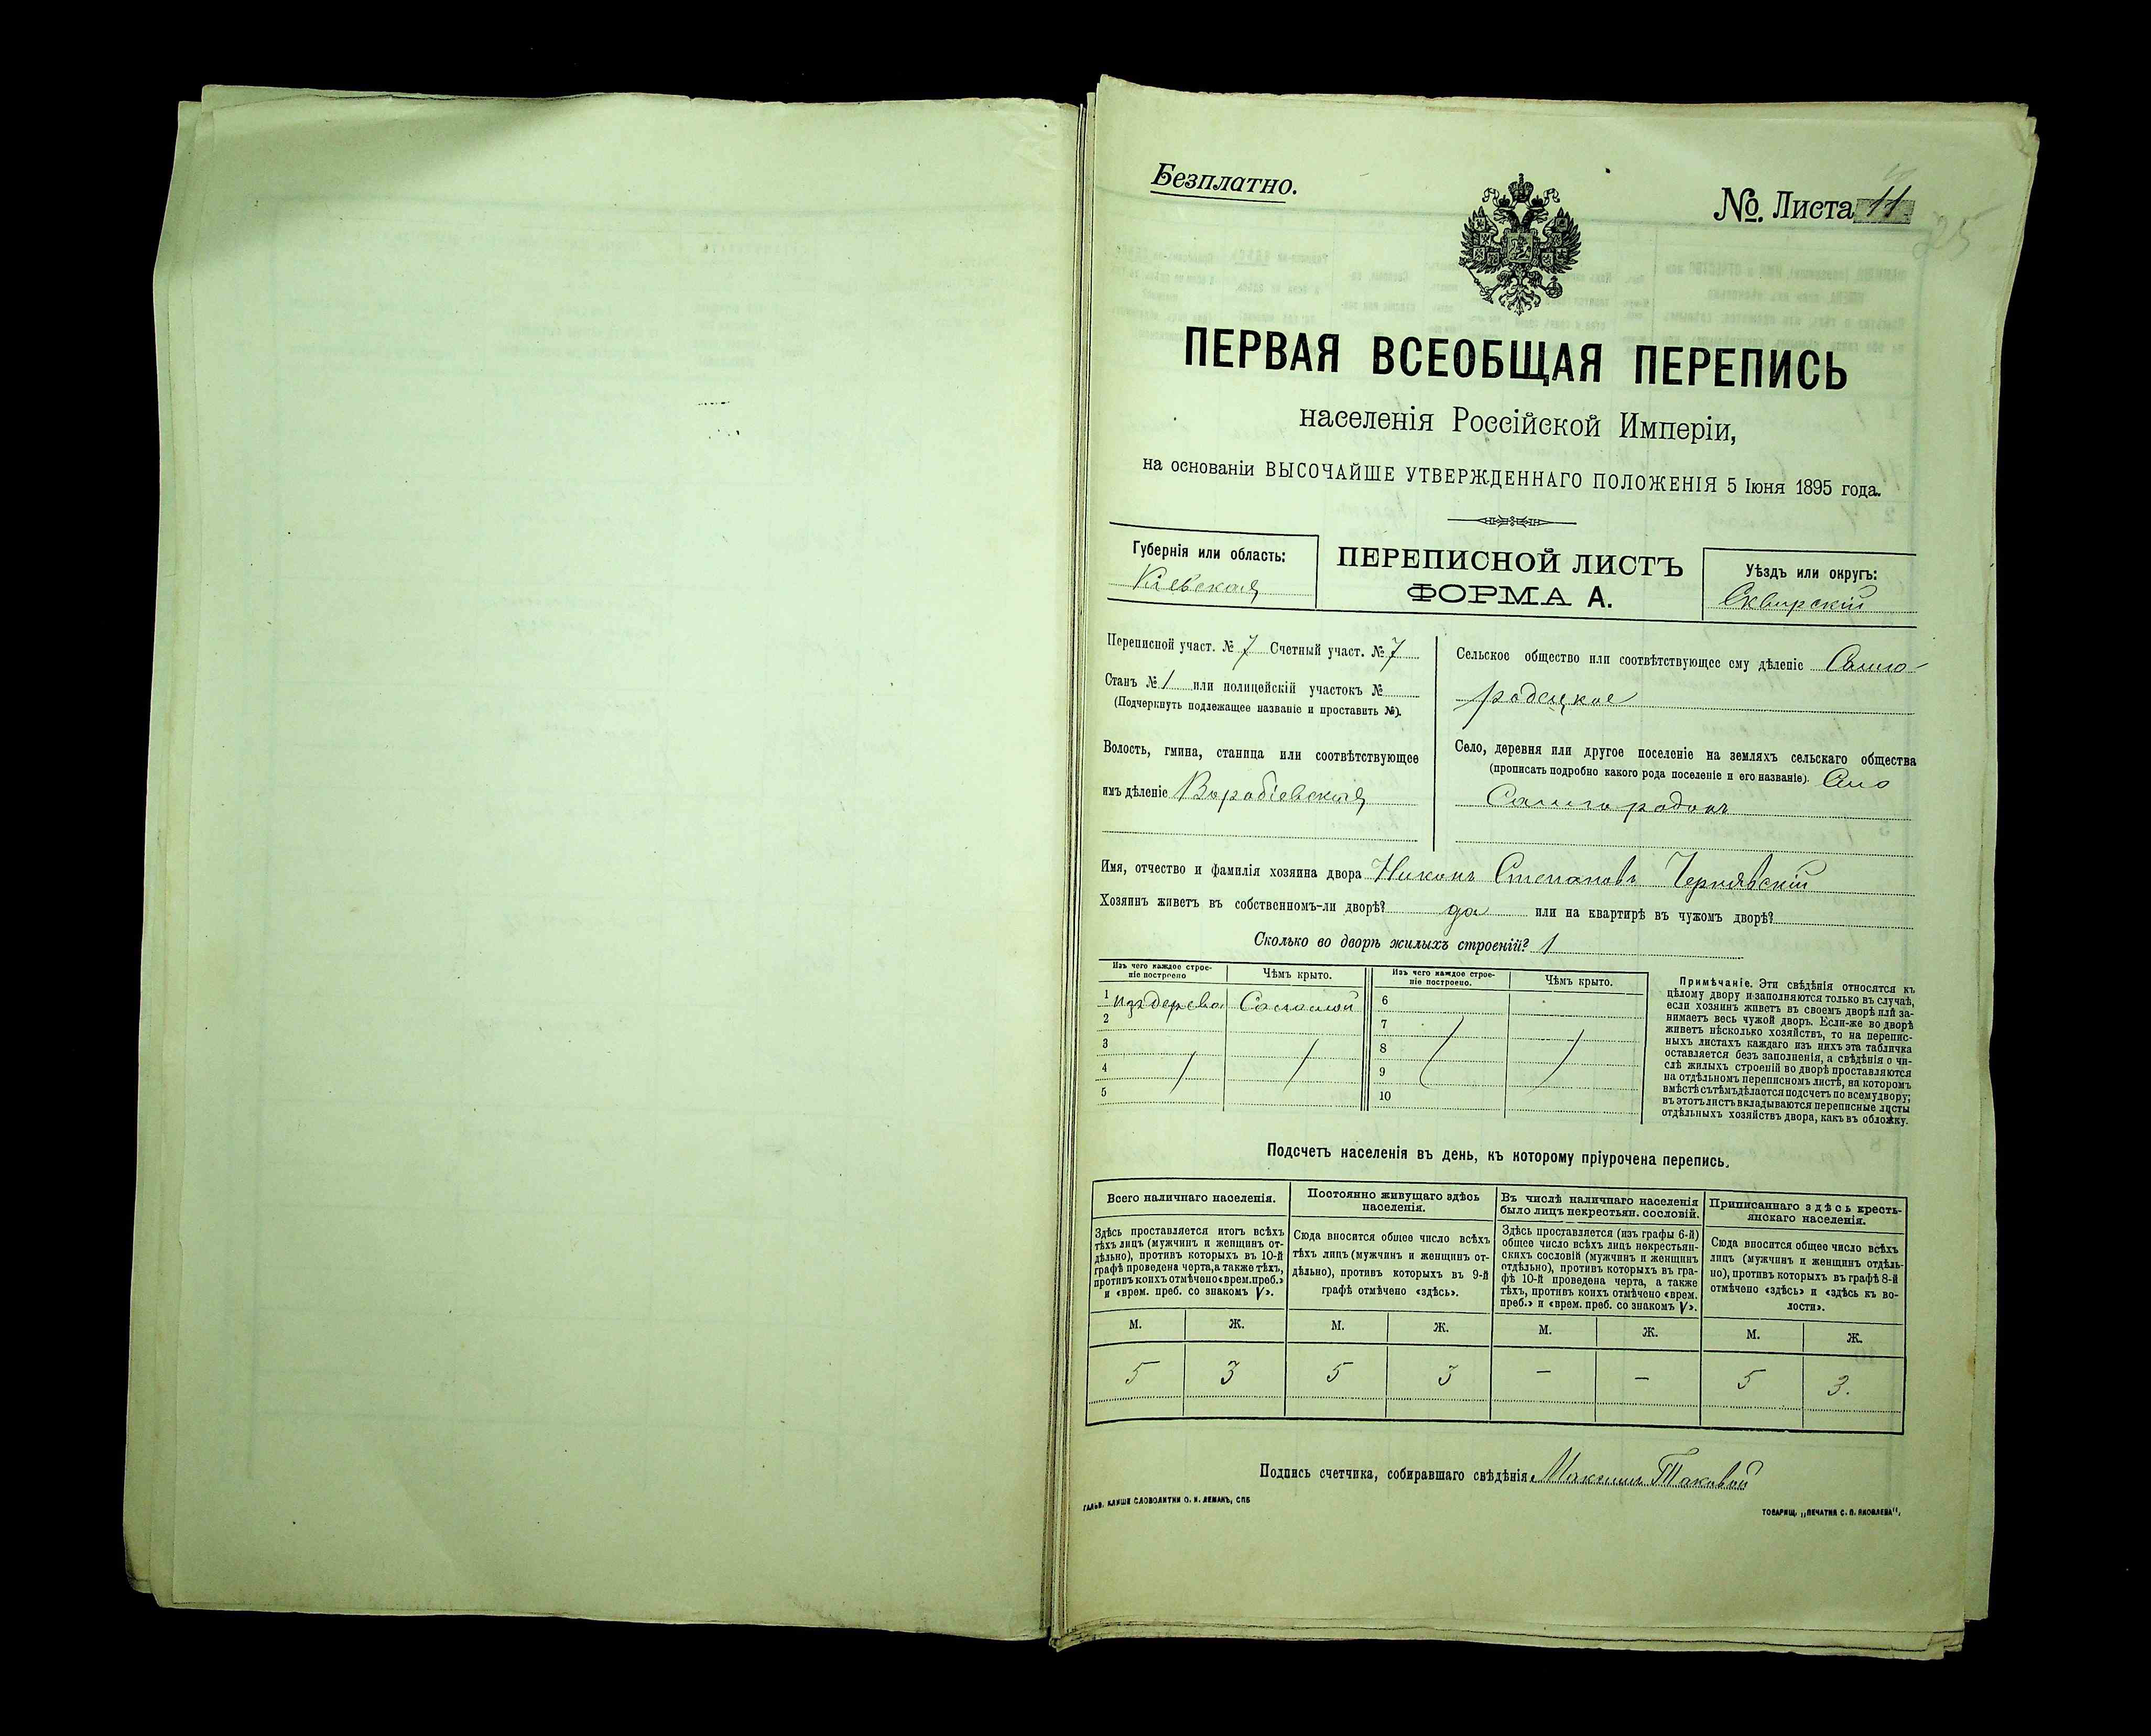 Безплатно.
№ Листа 11
25
ПЕРВАЯ ВСЕОБЩАЯ ПЕРЕПИСЬ
населенія Россійской Имперіи,
на основаніи ВЫСОЧАЙШЕ УТВЕРЖДЕННАГО ПОЛОЖЕНІЯ 5 Іюня 1895 года.
Губернія или область:
Кіевская
ПЕРЕПИСНОЙ ЛИСТЪ
ФОРМА А.
Уѣздъ или округъ:
Сквирскій
Переписной участ. № 7 Счетный участ. № 7
Станъ № 1 или полицейскій участокъ №
(Подчеркнуть подлежащее названіе и проставить №).
Волость, гмина, станица или соотвѣтствующее
имъ дѣленіе Воробіевская
Сельское общество или соотвѣтствующее ему дѣленіе Самго-
родецкое
Село, деревня или другое поселеніе на земляхъ сельскаго общества
(прописать подробно какого рода поселеніе и его названіе). Село
Самгородокъ
Имя, отчество и фамилія хозяина двора Никонъ Степановъ Чернявскій
Хозяинъ живетъ въ собственномъ-ли дворѣ? да или на квартирѣ въ чужомъ дворѣ?
Сколько во дворѣ жилыхъ строеній? 1
Изъ чего каждое строе-
ніе построено
Чѣмъ крыто.
Изъ чего каждое строе-
ніе построено.
Чѣмъ крыто.
1 изъ дерева Соломой
2
3
4
5
6
7
8
9
10
Примѣчаніе. Эти свѣдѣнія относятся къ
цѣлому двору и заполняются только въ случаѣ,
если хозяинъ живетъ въ своемъ дворѣ или за-
нимаетъ весь чужой дворъ. Если-же во дворѣ
живетъ нѣсколько хозяйствъ, то на перепис-
ныхъ листахъ каждаго изъ нихъ эта табличка
оставляется безъ заполненія, а свѣдѣнія о чи-
слѣ жилыхъ строеній во дворѣ проставляются
на отдѣльномъ переписномъ листѣ, на которомъ
вмѣстѣ съ тѣмъ дѣлается подсчетъ по всему двору;
въ этотъ листъ вкладываются переписные листы
отдѣльныхъ хозяйствъ двора, какъ въ обложку.
Подсчетъ населенія въ день, къ которому пріурочена перепись.
Всего наличнаго населенія.
Здѣсь проставляется итогъ всѣхъ
тѣхъ лицъ (мужчинъ и женщинъ от-
дѣльно), противъ которыхъ въ 10-й
графѣ проведена черта, а также тѣхъ,
противъ коихъ отмѣчено «врем. преб.»
и «врем. преб. со знакомъ V».
Постоянно живущаго здѣсь
населенія.
Сюда вносится общее число всѣхъ
тѣхъ лицъ (мужчинъ и женщинъ от-
дѣльно), противъ которыхъ въ 9-й
графѣ отмѣчено «здѣсь».
Въ числѣ наличнаго населенія
было лицъ некрестьян. сословій.
Здѣсь проставляется (изъ графы 6-й)
общее число всѣхъ лицъ некрестьян-
скихъ сословій (мужчинъ и женщинъ
отдѣльно), противъ которыхъ въ гра-
фѣ 10-й проведена черта, а также
тѣхъ, противъ коихъ отмѣчено «врем.
преб.» и «врем. преб. со знакомъ V».
Приписаннаго здѣсь кресть-
янскаго населенія.
Сюда вносится общее число всѣхъ
лицъ (мужчинъ и женщинъ отдѣль-
но), противъ которыхъ въ графѣ 8-й
отмѣчено «здѣсь» и «здѣсь къ во-
лости».
М. Ж. М. Ж. М. Ж. М. Ж.
5 3 5 3 — — 5 3.
Подпись счетчика, собиравшаго свѣдѣнія. Максимъ Таковой
ГАЛЬВ. КЛИШЕ СЛОВОЛИТНИ О. И. ЛЕМАНЪ, СПБ
ТОВАРИЩ. „ПЕЧАТНЯ С. П. ЯКОВЛЕВА".